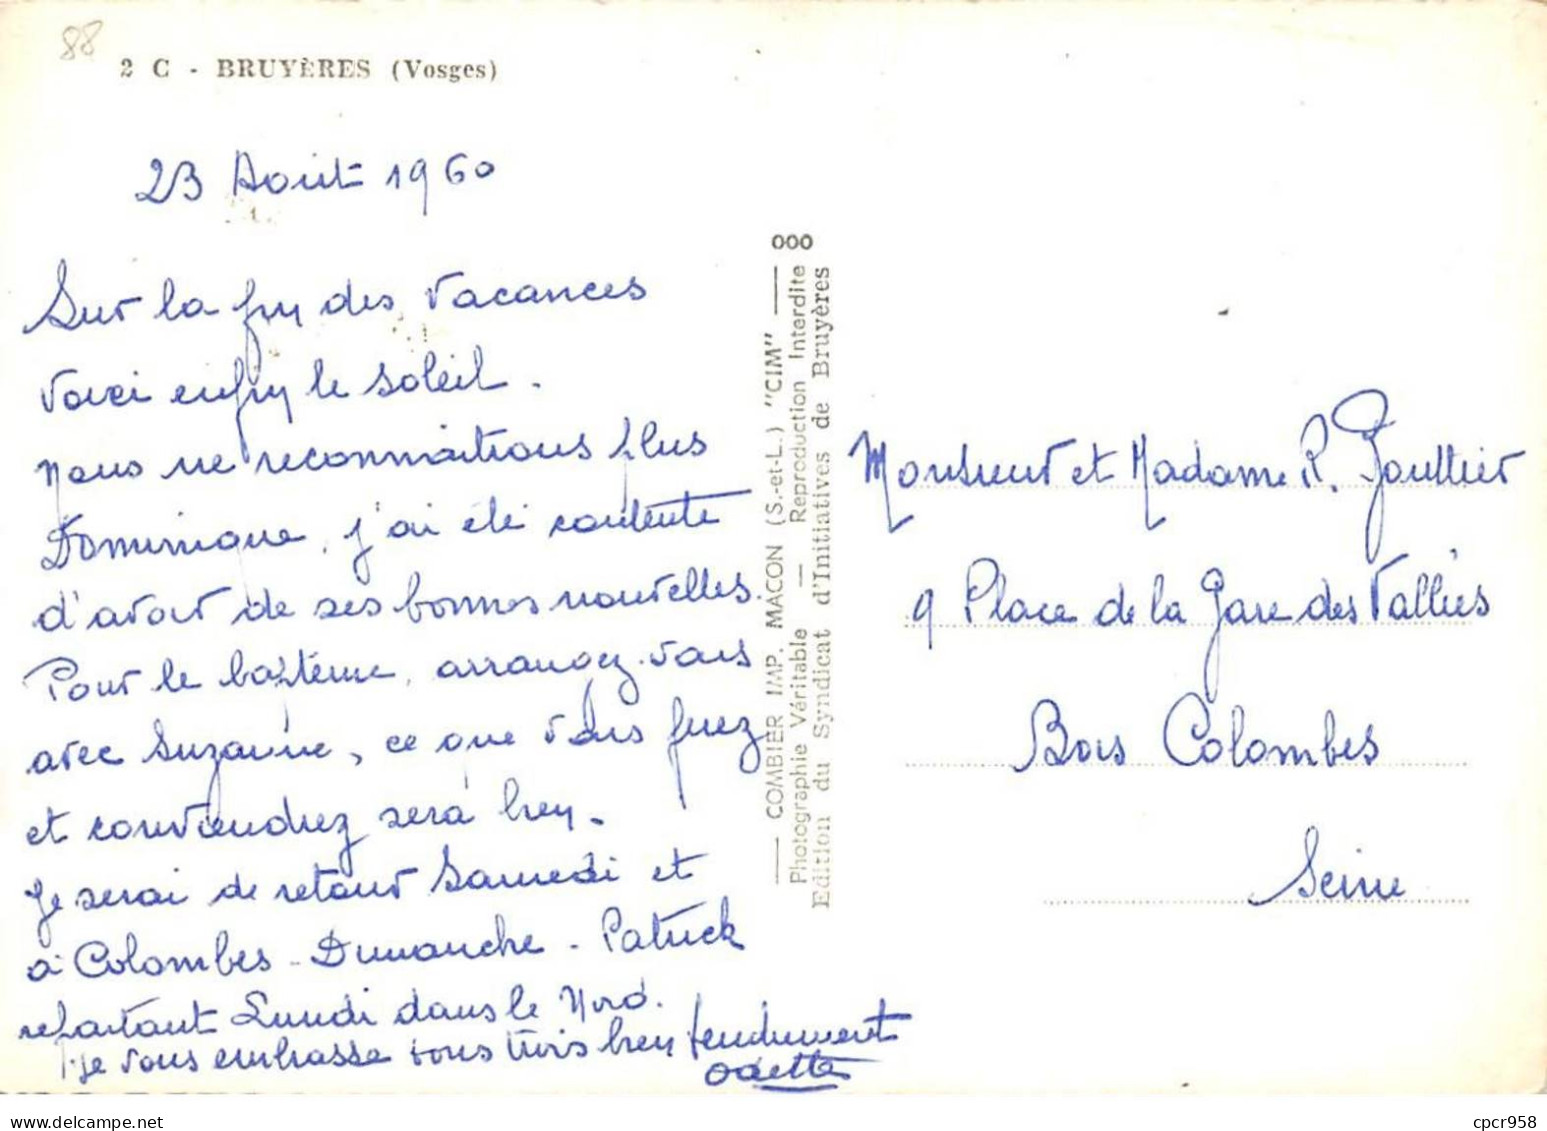 88
2 C - BRUYÈRES (Vosges)
23 Août 1960
Sur la fin des vacances
voici enfin le soleil.
Nous ne reconnaitrons plus
Dominique, j'ai été contente
d'avoir de ses bonnes nouvelles.
Pour le baptême, arrangez-vous
avec Suzanne, ce que vous ferez
et conviendrez sera bien.
Je serai de retour Samedi et
à Colombes Dimanche - Patrick
repartant Lundi dans le Nord.
je vous embrasse tous trois bien tendrement
Odette
000
COMBIER IMP. MACON (S.-et-L.) "CIM"
Photographie Véritable — Reproduction Interdite
Edition du Syndicat d'Initiatives de Bruyères
Monsieur et Madame R. Gaultier
9 Place de la Gare des Vallées
Bois Colombes
Seine
delcampe.net
cpcr958